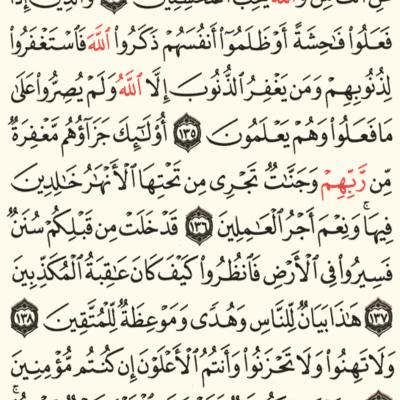 عَنِ النَّاسِ وَاللَّهُ يُحِبُّ الْمُحْسِنِينَ ١٣٤ وَالَّذِينَ إِذَا
فَعَلُوا فَاحِشَةً أَوْ ظَلَمُوٓا أَنفُسَهُمْ ذَكَرُوا اللَّهَ فَاسْتَغْفَرُوا
لِذُنُوبِهِمْ وَمَن يَغْفِرُ الذُّنُوبَ إِلَّا اللَّهُ وَلَمْ يُصِرُّوا عَلَىٰ
مَا فَعَلُوا وَهُمْ يَعْلَمُونَ ١٣٥ أُولَٰٓئِكَ جَزَآؤُهُم مَّغْفِرَةٌ
مِّن رَّبِّهِمْ وَجَنَّاتٌ تَجْرِى مِن تَحْتِهَا الْأَنْهَارُ خَالِدِينَ
فِيهَا ۚ وَنِعْمَ أَجْرُ الْعَامِلِينَ ١٣٦ قَدْ خَلَتْ مِن قَبْلِكُمْ سُنَنٌ
فَسِيرُوا فِى الْأَرْضِ فَانظُرُوا كَيْفَ كَانَ عَاقِبَةُ الْمُكَذِّبِينَ
١٣٧ هَٰذَا بَيَانٌ لِّلنَّاسِ وَهُدًى وَمَوْعِظَةٌ لِّلْمُتَّقِينَ ١٣٨
وَلَا تَهِنُوا وَلَا تَحْزَنُوا وَأَنتُمُ الْأَعْلَوْنَ إِن كُنتُم مُّؤْمِنِينَ